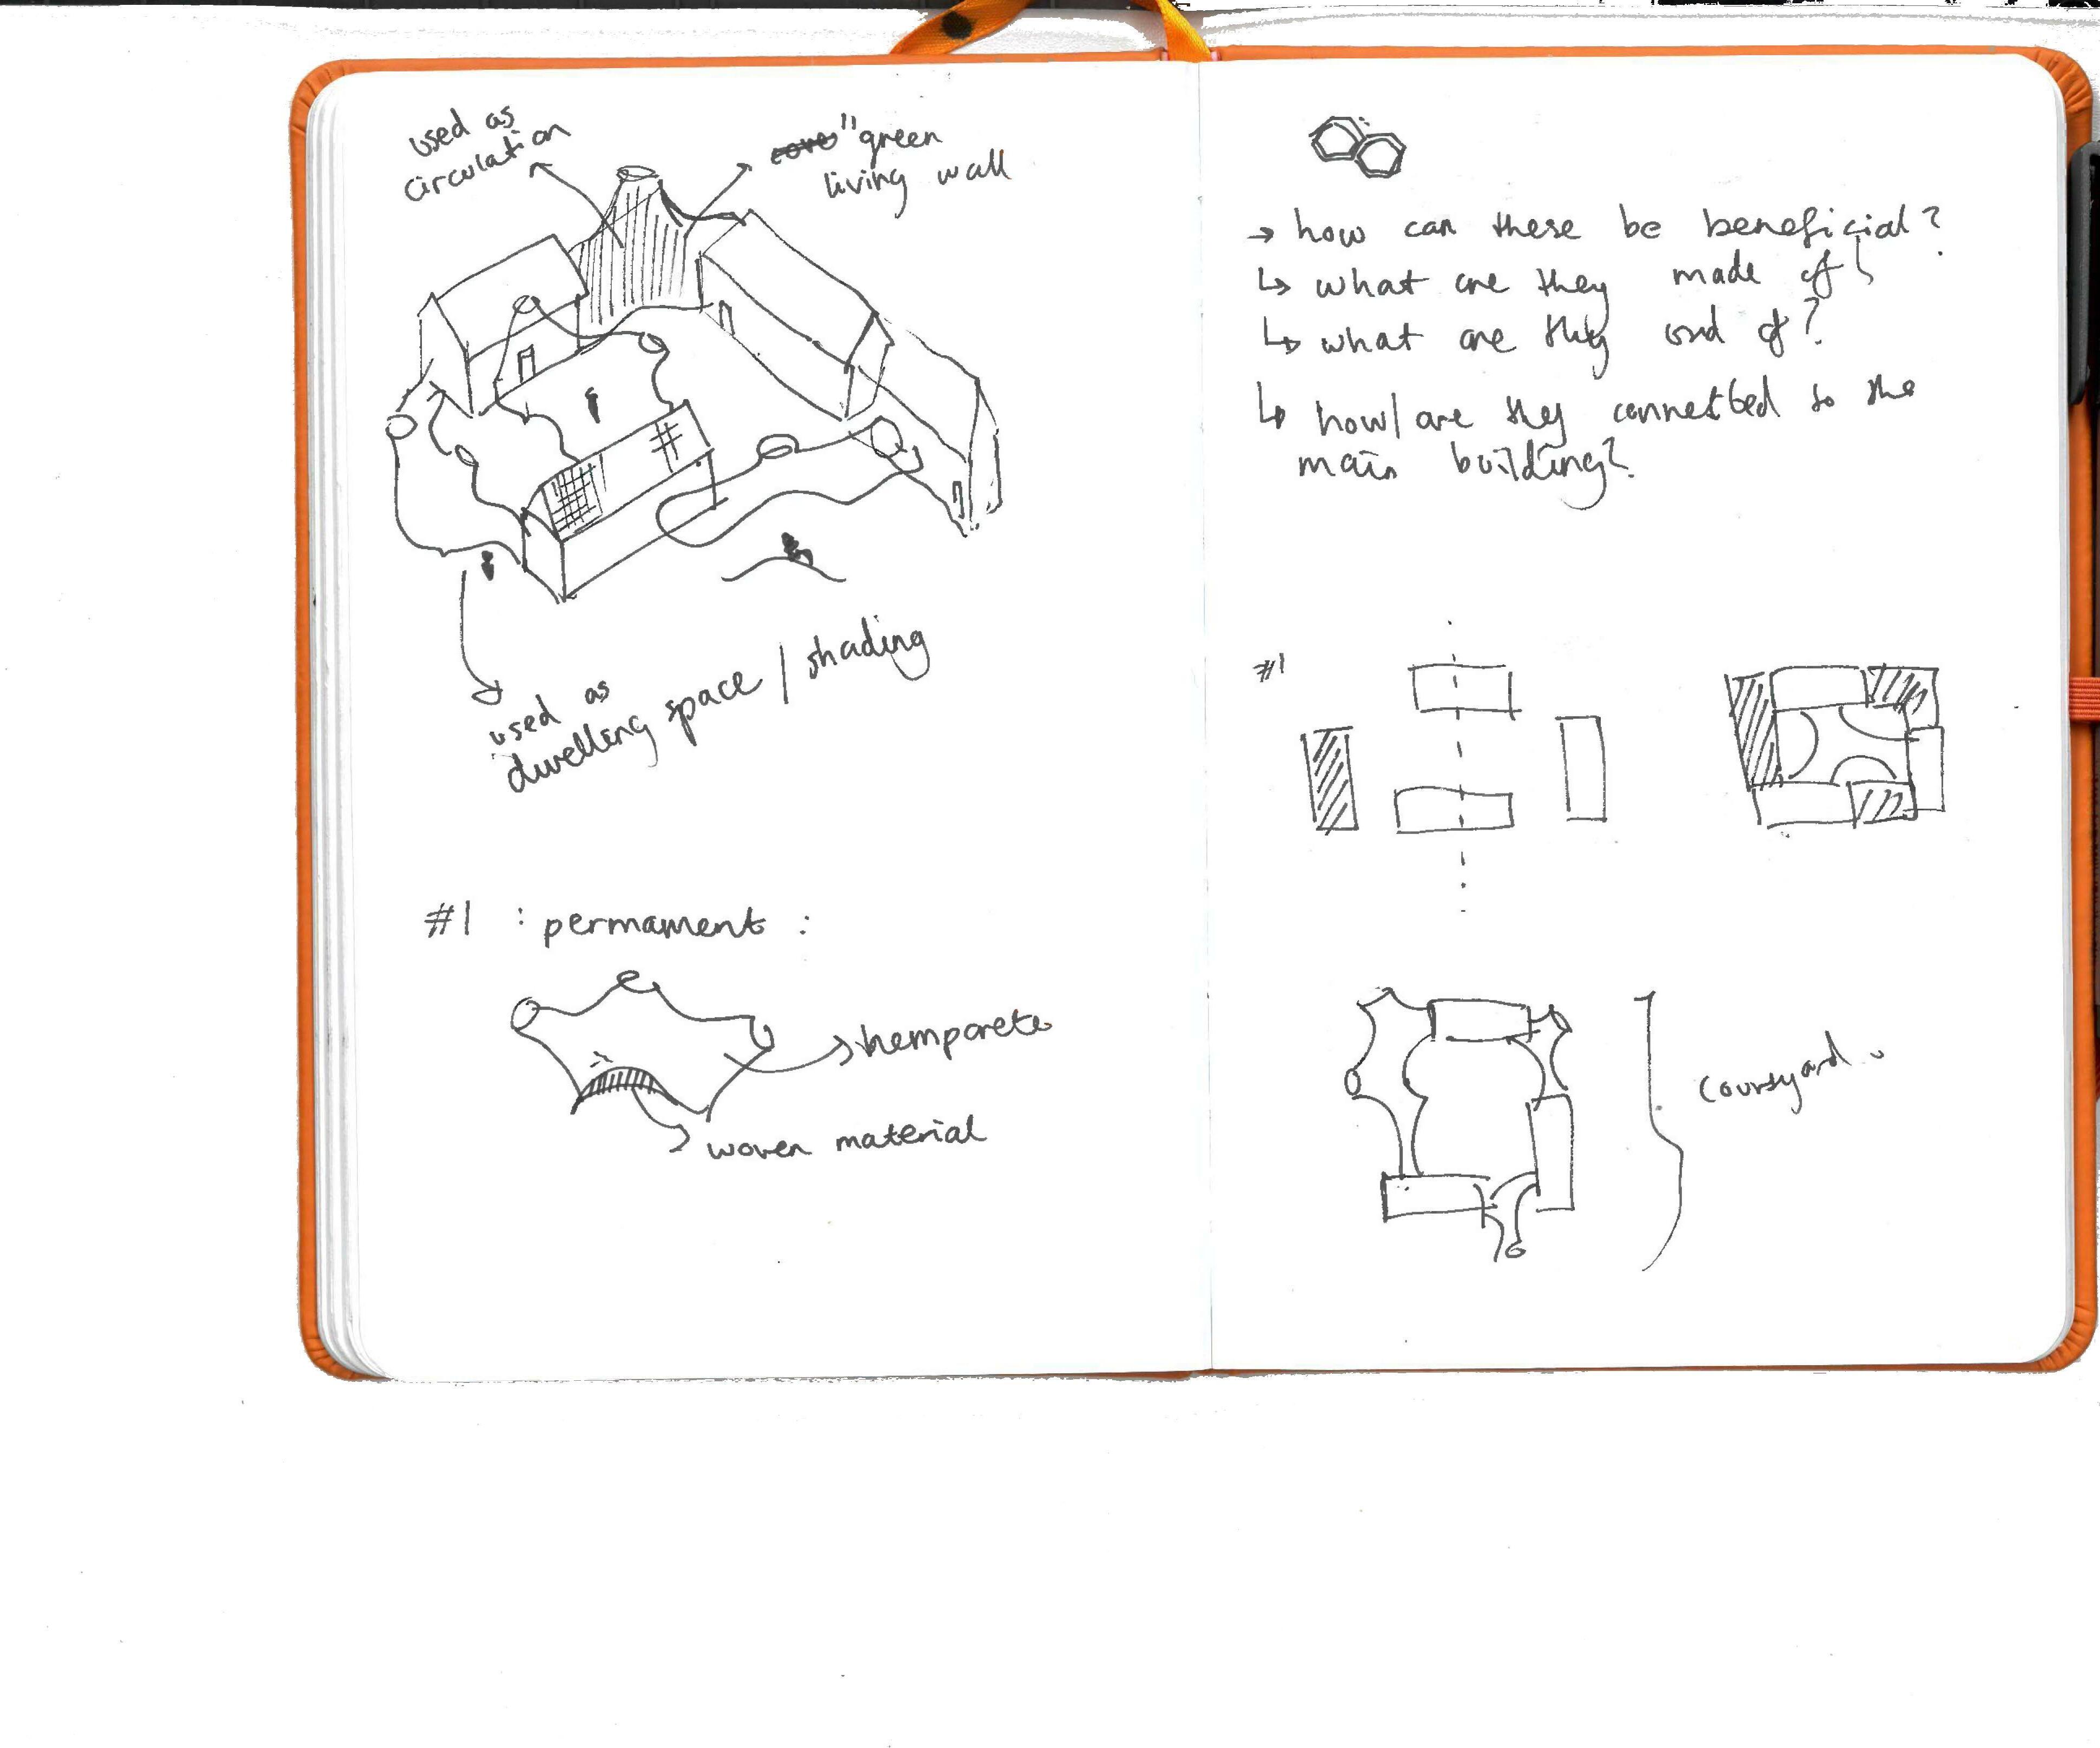 used as
circulation
"green
living wall
used as
dwelling space / shading
#1 : permament :
hempcrete
woven material
→ how can these be beneficial?
↳ what are they made of
↳ what are they of?
↳ how/are they connected to the
main building?
#1
courtyard